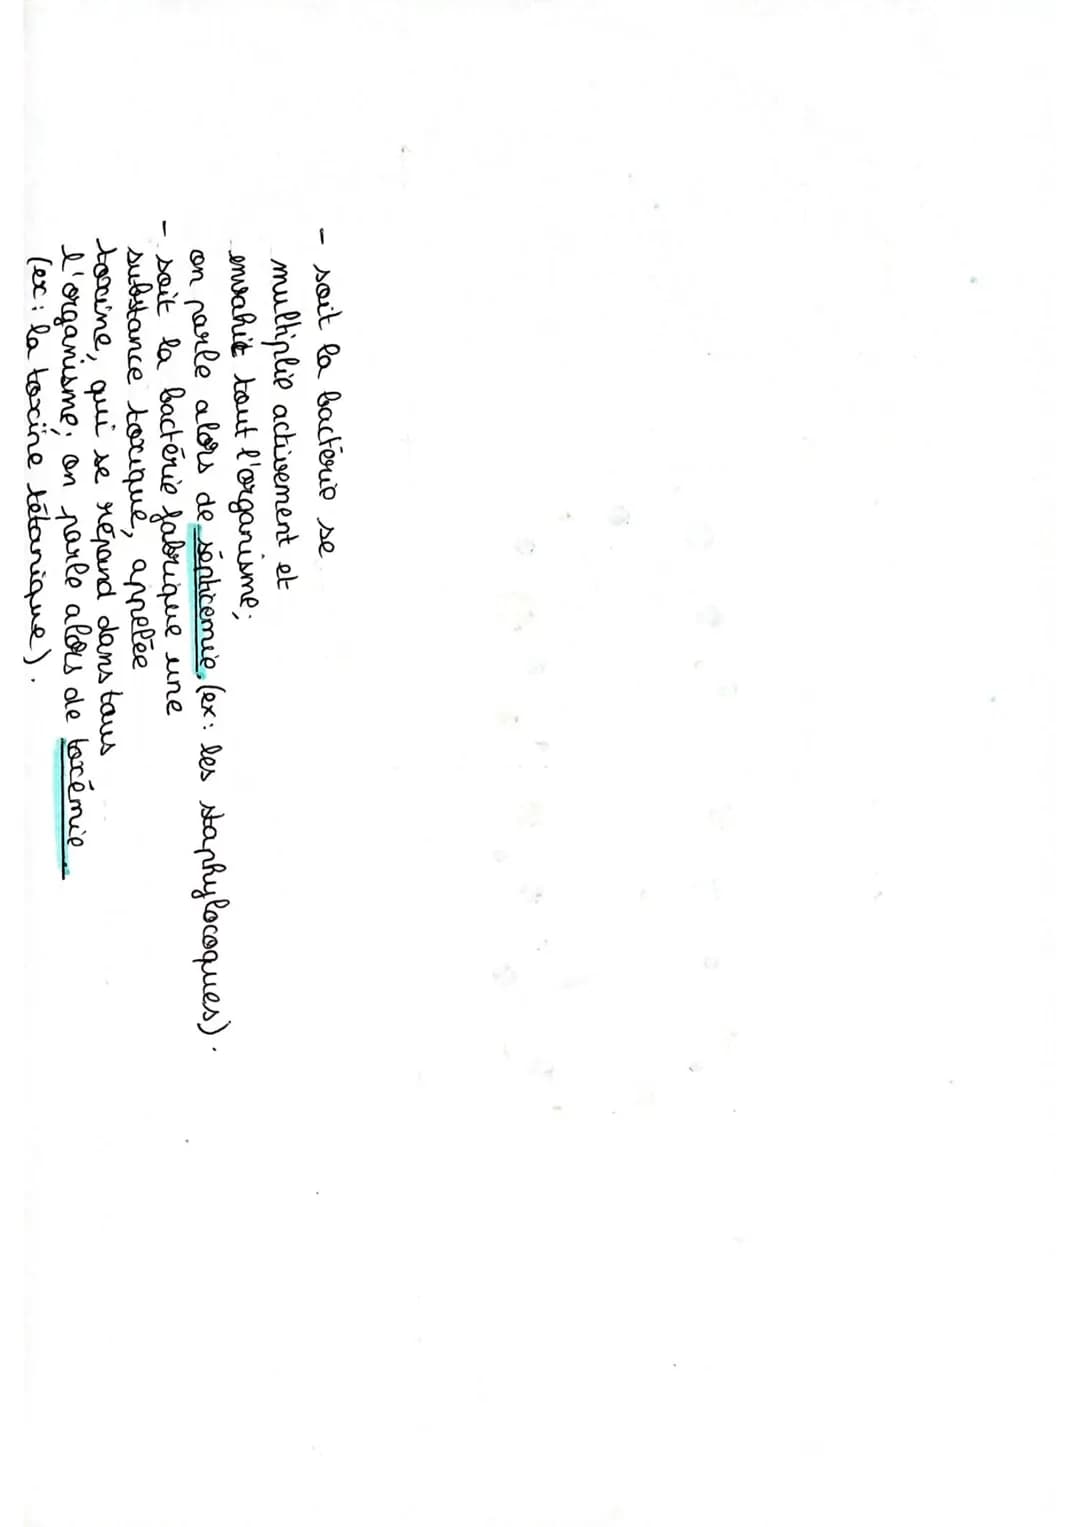 - soit la bactérie se
multiplie activement et
envahit tout l'organisme;
on parle alors de septicemie (ex: les staphylocoques).
- soit la bactérie fabrique une
substance toxique, appelée
toxine, qui se répand dans tous
l'organisme; on parle alors de toxémie
(ex: la toxine tétanique).